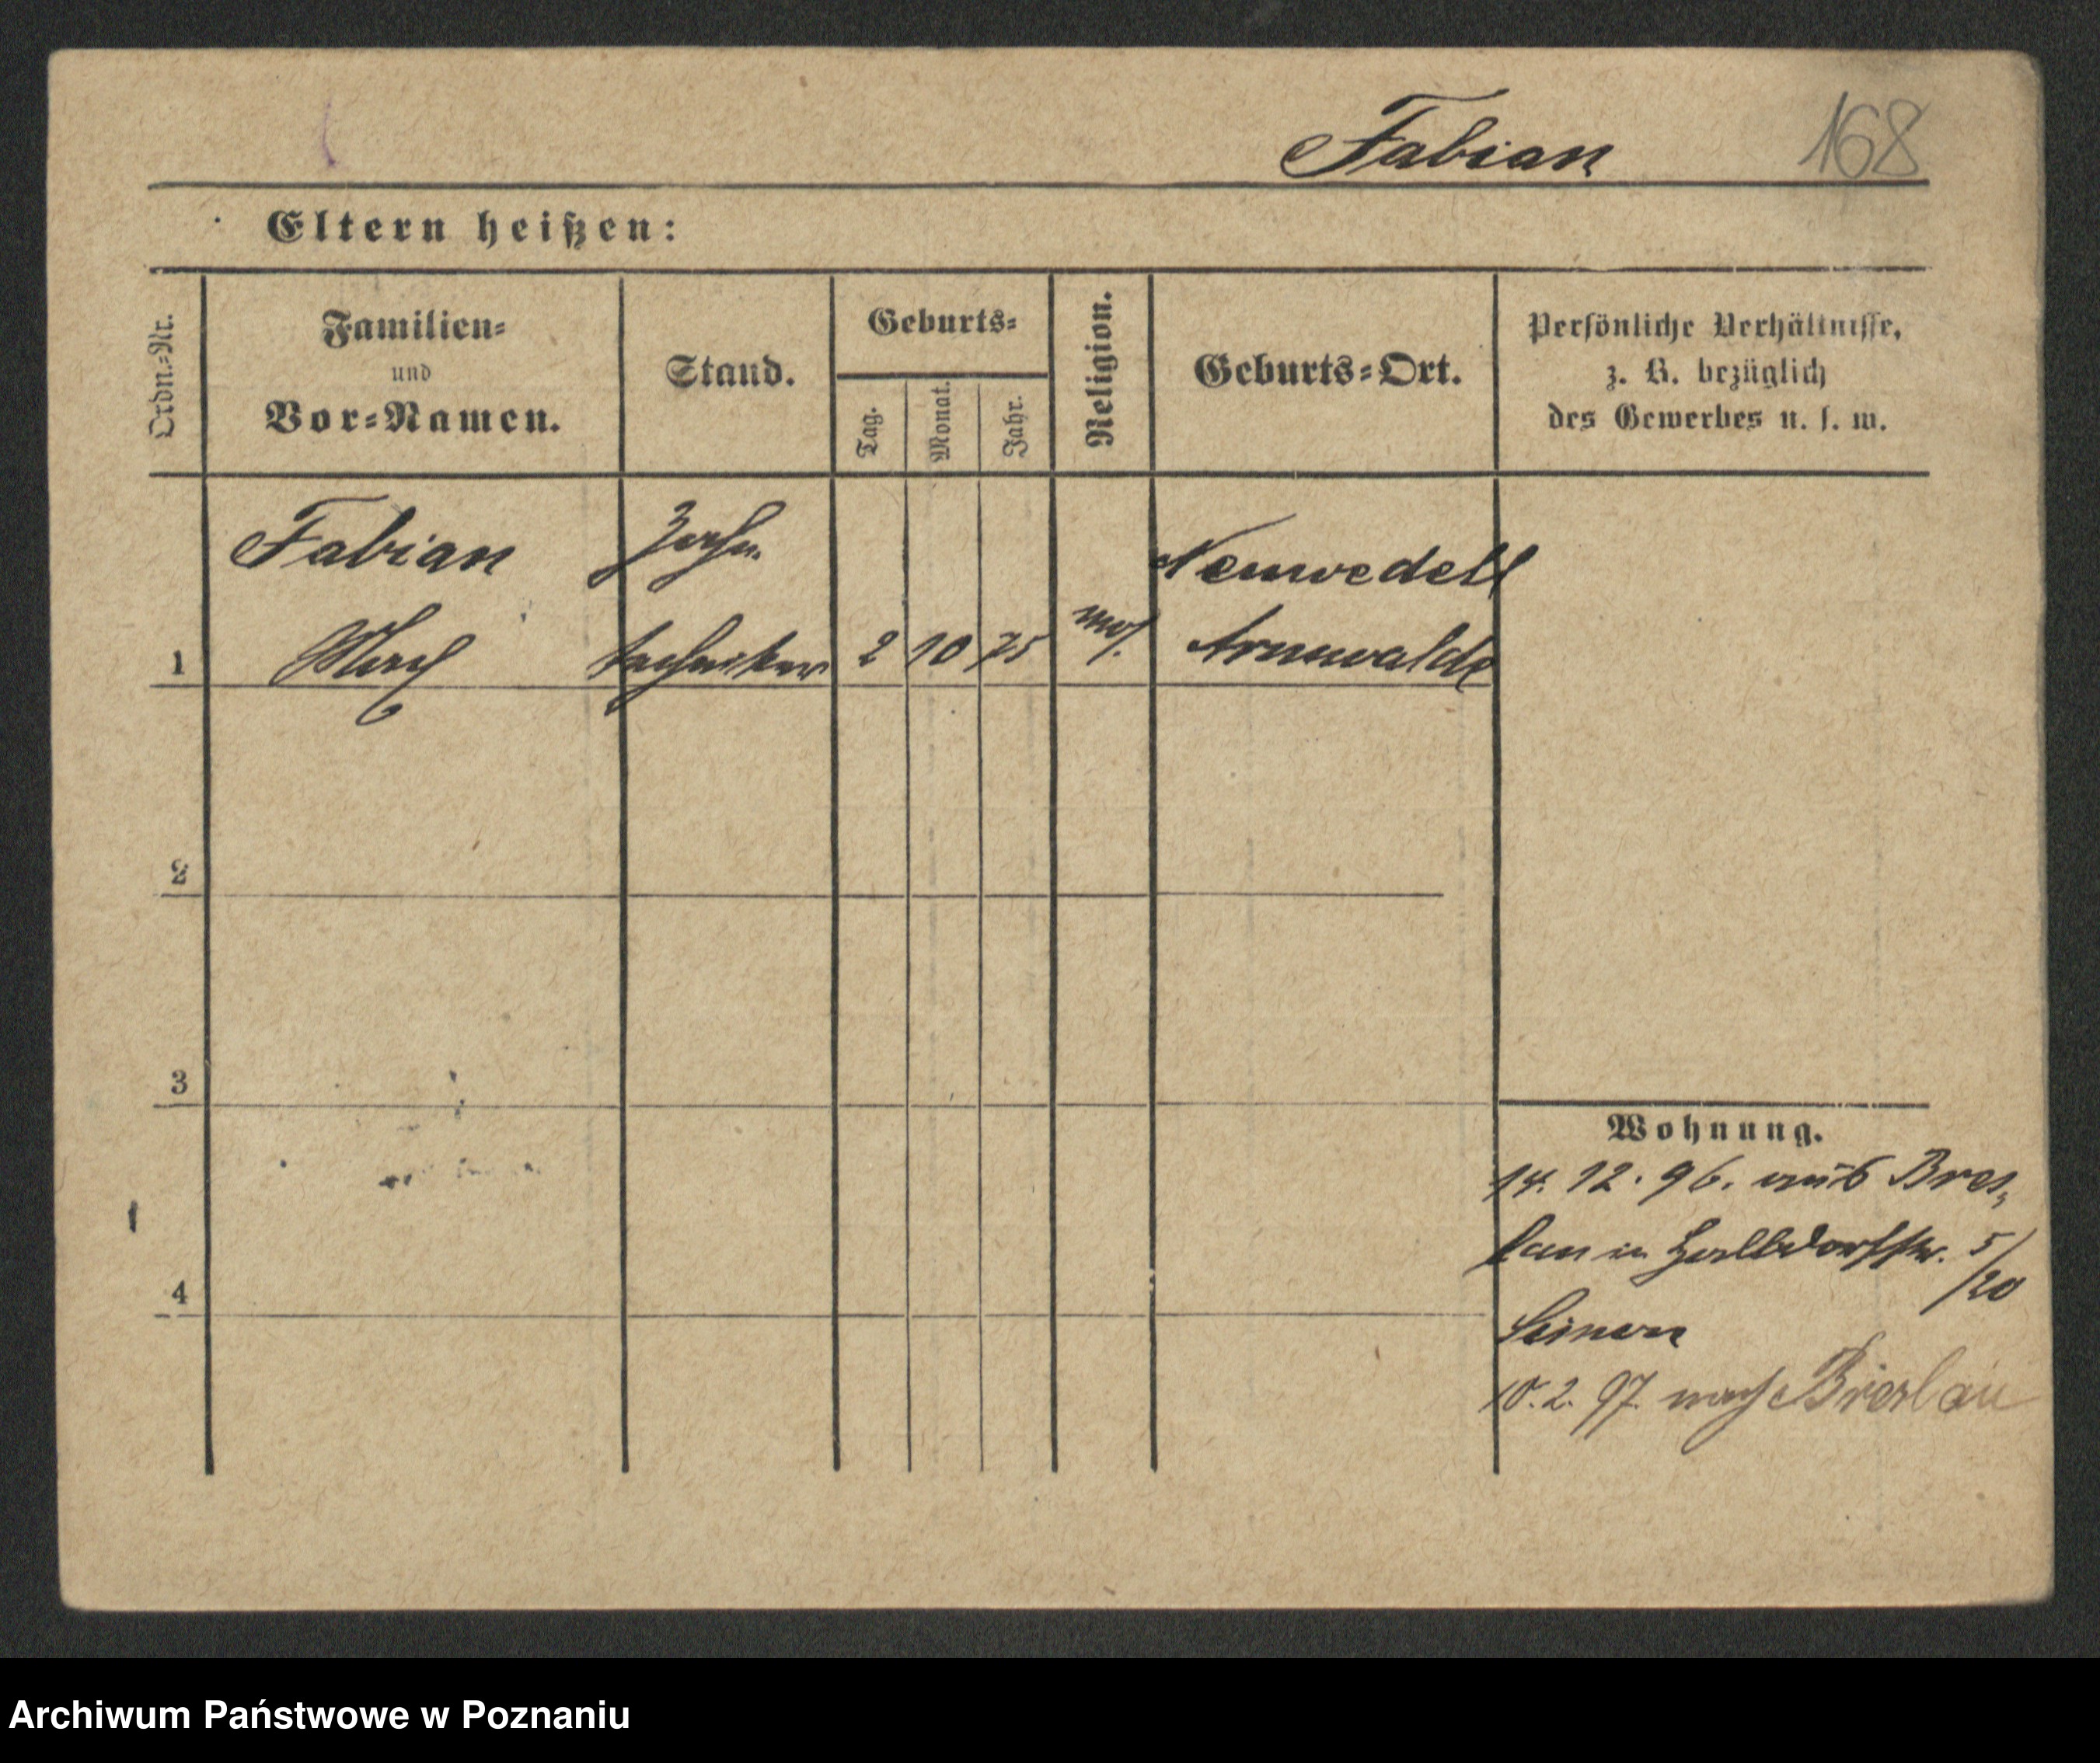 Fabian 168
Eltern heißen:
Ordn.=Nr.
Familien=
und
Vor=Namen.
Stand.
Geburts=
Tag.
Monat.
Jahr.
Religion.
Geburts=Ort.
Persönliche Verhältnisse,
z. B. bezüglich
des Gewerbes u. s. w.
Fabian Zahn Neuwedell
1 techniker 2 10 75 mos. Arnswalde
2
3
4
Wohnung.
14. 12. 96. aus Bres-
lau in Halbdorfstr. 5/20
Simon
10. 2. 97. nach Breslau
Archiwum Państwowe w Poznaniu